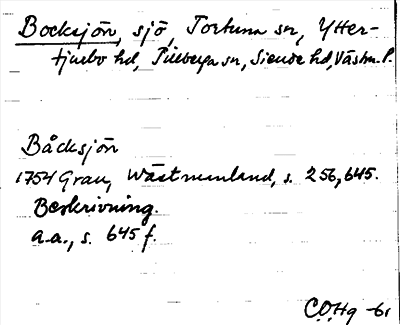 Bocksjön, sjö, Tortuna sn, Ytter-
tjurbo hd, Tillberga sn, Siende hd, Västm. l.
Båcksjön
1754 Grau, Wästmanland, s. 256, 645.
Beskrivning.
a.a., s. 645 f.
C.O.Hg -61